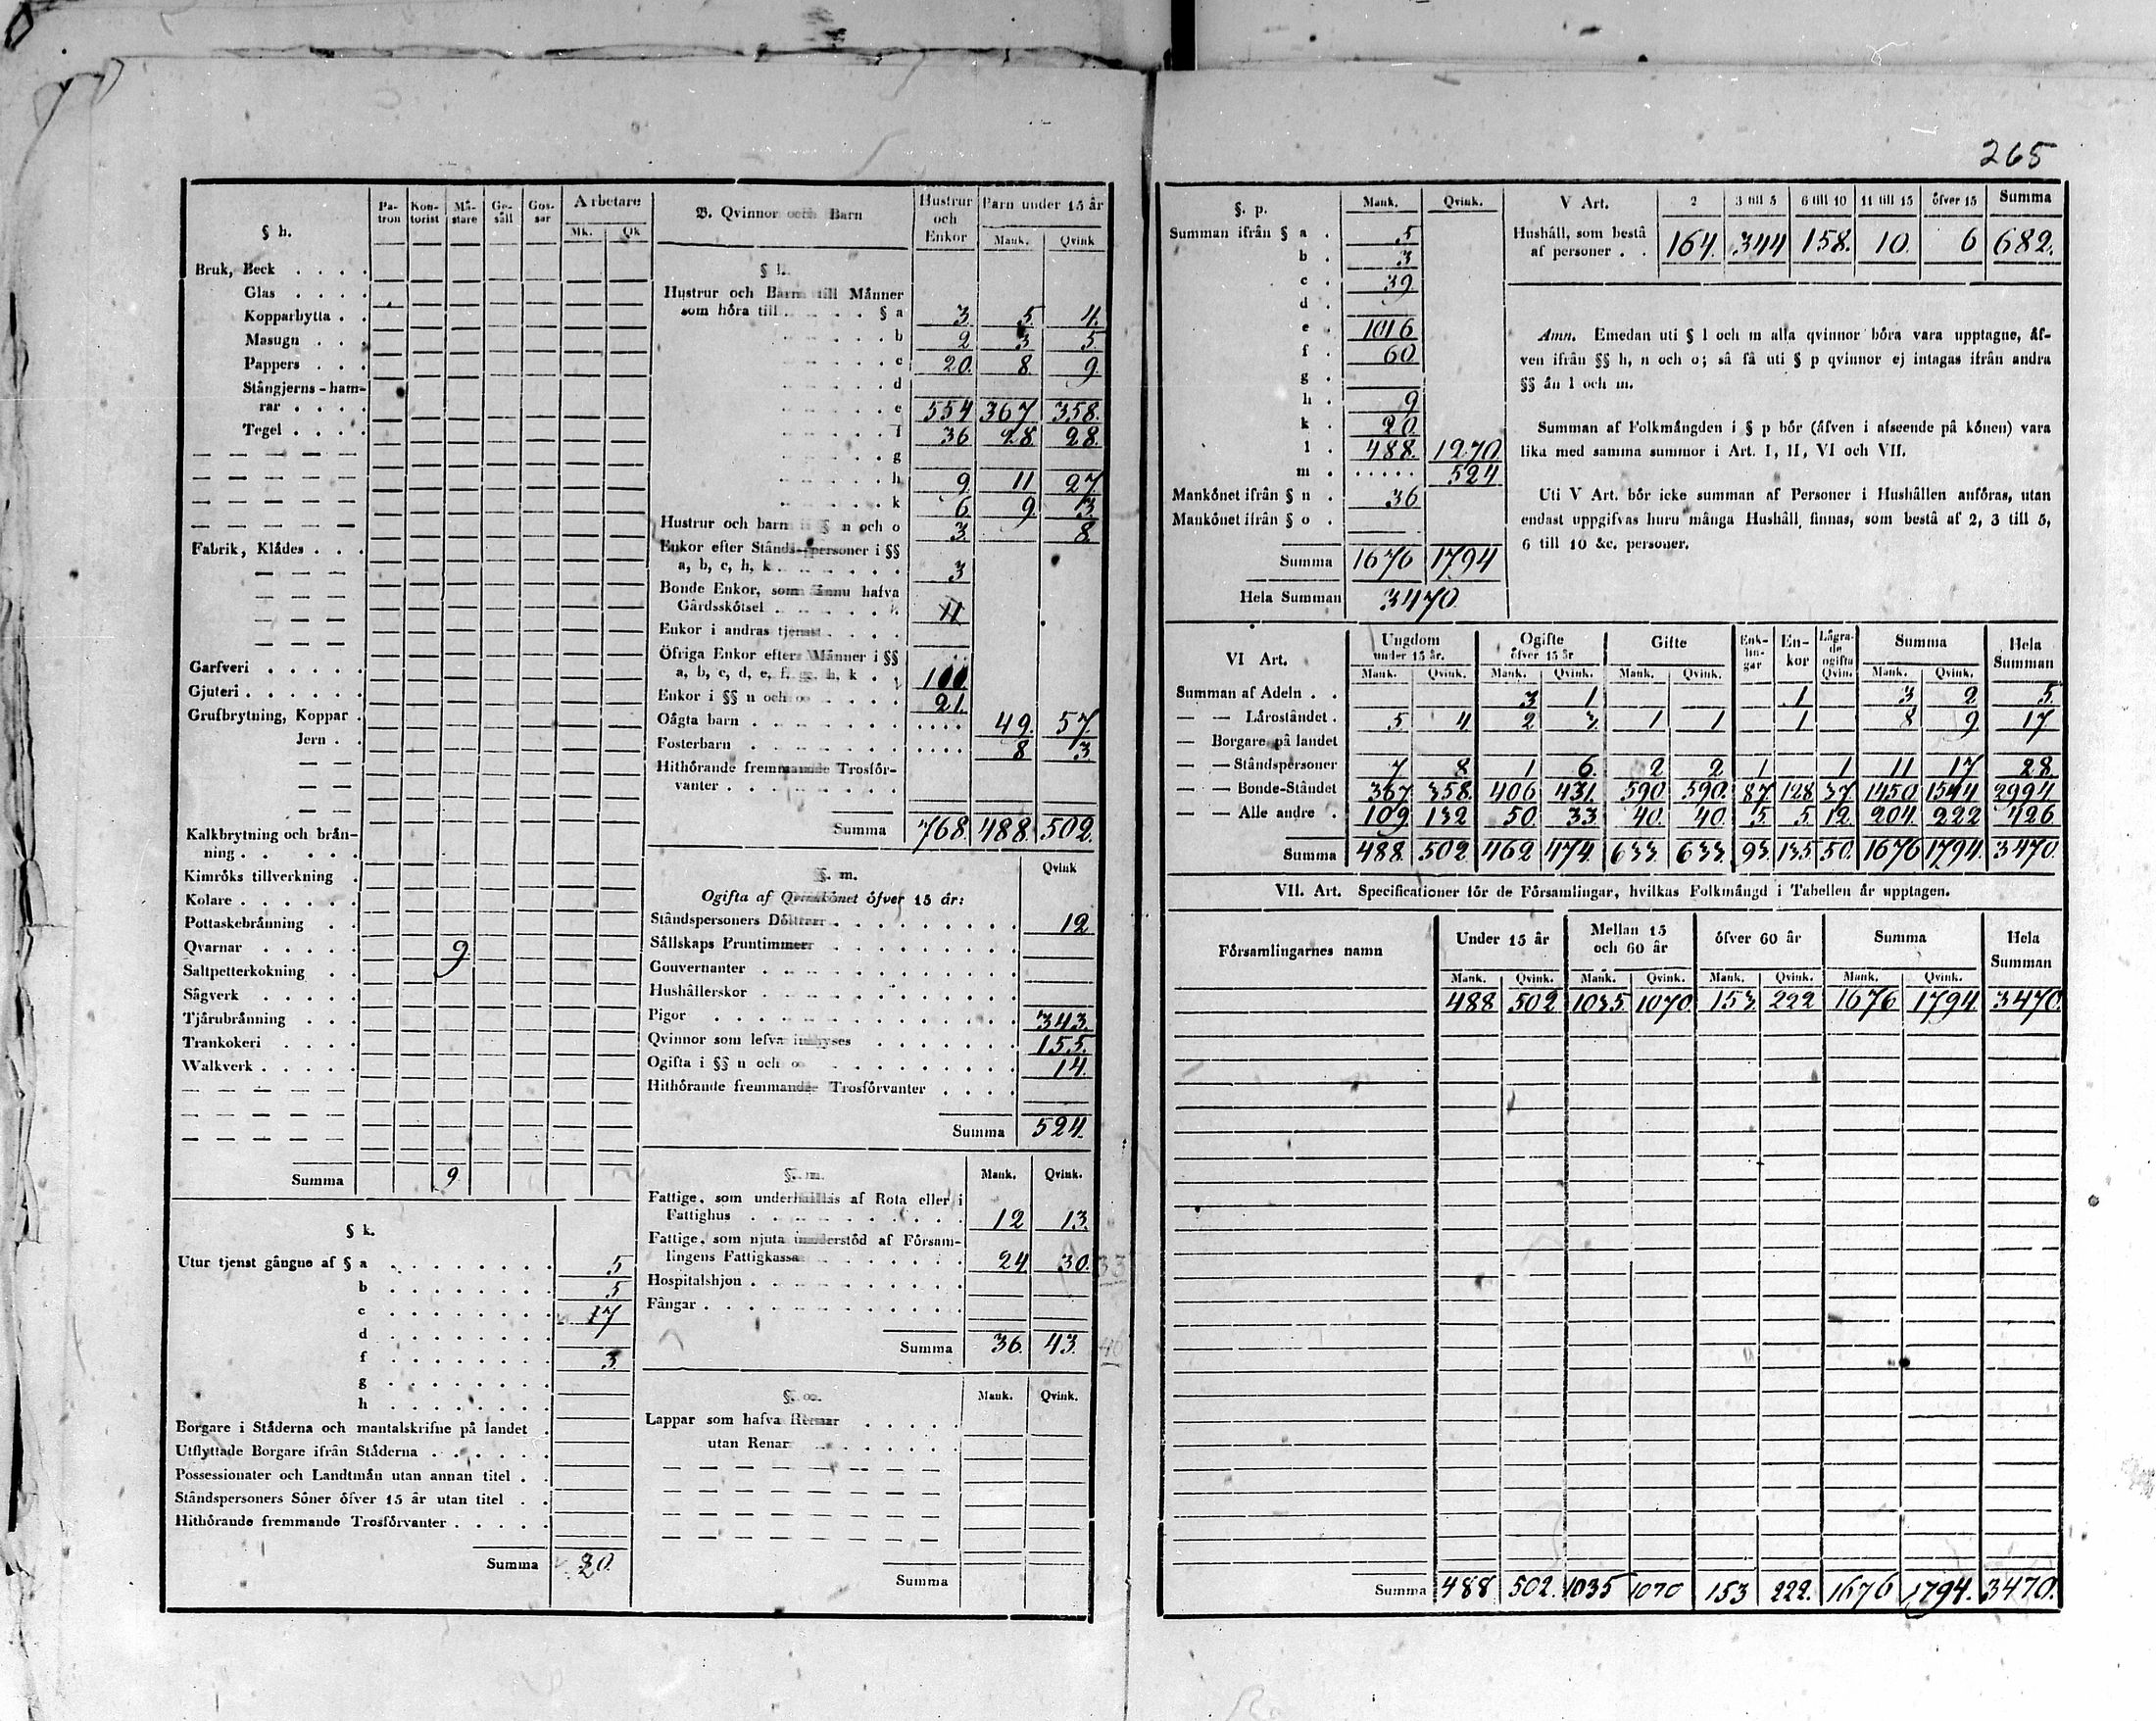 265
§ h.
Pa-
tron
Kon-
torist
Må-
stare
Ge-
säll
Gos-
sar
Arbetare
Mk. Qk
Bruk, Beck . . . .
Glas . . . .
Kopparhytta . .
Masugn . . .
Pappers . . .
Stångjerns-ham-
rar . . . .
Tegel . . . .
Fabrik, Klådes . . .
Garfveri . . . . .
Gjuteri . . . . . .
Grufbrytning, Koppar .
Jern . .
Kalkbrytning och brån-
ning . . . . . .
Kimröks tillverkning .
Kolare . . . . . .
Pottaskebrånning . .
Qvarnar . . . . 9
Saltpetterkokning . .
Sågverk . . . . .
Tjårubrånning . . .
Trankokeri . . . .
Walkverk . . . . .
Summa 9
§ k.
Utur tjenst gångne af § a . . . . . . . . 5
b . . . . . . . . 5
c . . . . . . . . 17
d . . . . . . . .
f . . . . . . . . 3
g . . . . . . . .
h . . . . . . . .
Borgare i Ståderna och mantalskrifne på landet .
Utflyttade Borgare ifrån Ståderna . . . . . .
Possessionater och Landtmån utan annan titel . .
Ståndspersoners Söner öfver 15 år utan titel . .
Hithörande fremmande Trosförvanter . . . . .
Summa 20
B. Qvinnor och Barn
Hustrur
och
Enkor
Barn under 15 år
Mank. Qvink
§ l.
Hustrur och Barn till Männer
som höra till . . . . . § a 3 5 4
b 2 3 5
c 20 8 9
d
e 554 367 358
f 36 28 28
g
h 9 11 27
k 6 9 3
Hustrur och barn i § n och o 3 8
Enkor efter Stånds-personer i §§
a, b, c, h, k . . . . . . . 3
Bonde Enkor, som ännu hafva
Gårdsskötsel . . . . . . 4
Enkor i andras tjenst . . . .
Öfriga Enkor efter Männer i §§
a, b, c, d, e, f, g, h, k . . 100
Enkor i §§ n och o . . . . . 21
Oägta barn . . . . . . . . . . . . 49 57
Fosterbarn . . . . . . . . . . . . 8 3
Hithörande fremmande Trosför-
vanter . . . . . . . . .
Summa 768 488 502
§. m.
Qvink
Ogifta af Qvinnkönet öfver 15 år:
Ståndspersoners Döttrar . . . . . . . . . 12
Sällskaps Fruntimmer . . . . . . . . . .
Gouvernanter . . . . . . . . . . . .
Hushållerskor . . . . . . . . . . . .
Pigor . . . . . . . . . . . . . . 343
Qvinnor som lefva inhyses . . . . . . . 155
Ogifta i §§ n och o . . . . . . . . . . 14
Hithörande fremmande Trosförvanter . . . .
Summa 524
Mank. Qvink.
Fattige, som underhållas af Rota eller i
Fattighus . . . . . . . . . . 12 13
Fattige, som njuta understöd af Försam-
lingens Fattigkassa . . . . . . . . 24 30 33
Hospitalshjon . . . . . . . . . . .
Fångar . . . . . . . . . . . . .
Summa 36 43
§. o. Mank. Qvink.
Lappar som hafva Renar . . . . .
utan Renar . . . . . .
Summa
§. p. Mank. Qvink.
Summan ifrån § a . 5
b . 3
c . 39
d .
e . 1016
f . 60
g .
h . 9
k . 20
l . 488 1270
m . . . . . . 524
Mankönet ifrån § n . 36
Mankönet ifrån § o .
Summa 1676 1794
Hela Summan 3470
V Art. 2 3 till 5 6 till 10 11 till 15 öfver 15 Summa
Hushåll, som bestå
af personer . . 164 344 158 10 6 682
Anm. Emedan uti § l och m alla qvinnor böra vara upptagne, äf-
ven ifrån §§ h, n och o; så få uti § p qvinnor ej intagas ifrån andra
§§ än l och m.
Summan af Folkmångden i § p bör (åfven i afseende på könen) vara
lika med samma summor i Art. I, II, VI och VII.
Uti V Art. bör icke summan af Personer i Hushållen anföras, utan
endast uppgifvas huru många Hushåll finnas, som bestå af 2, 3 till 5,
6 till 10 &c. personer.
VI Art.
Ungdom
under 15 år.
Ogifte
öfver 15 år
Gifte
Enk-
lin-
gar
En-
kor
Lägra-
de
ogifta
Qvin.
Summa
Hela
Summan
Mank. Qvink. Mank. Qvink. Mank. Qvink. Mank. Qvink.
Summan af Adeln . . 3 1 1 3 2 5
— — Låroståndet . 5 4 2 3 1 1 1 8 9 17
— Borgare på landet
— — Ståndspersoner 7 8 1 6 2 2 1 1 11 17 28
— — Bonde-Ståndet 367 358 406 431 590 590 87 128 37 1450 1544 2994
— — Alle andre . 109 132 50 33 40 40 5 5 12 204 222 426
Summa 488 502 462 474 633 633 93 135 50 1676 1794 3470
VII. Art. Specificationer för de Församlingar, hvilkas Folkmångd i Tabellen är upptagen.
Församlingarnes namn
Under 15 år
Mellan 15
och 60 år
öfver 60 år
Summa
Hela
Summan
Mank. Qvink. Mank. Qvink. Mank. Qvink. Mank. Qvink.
488 502 1035 1070 153 222 1676 1794 3470
Summa 488 502 1035 1070 153 222 1676 1794 3470